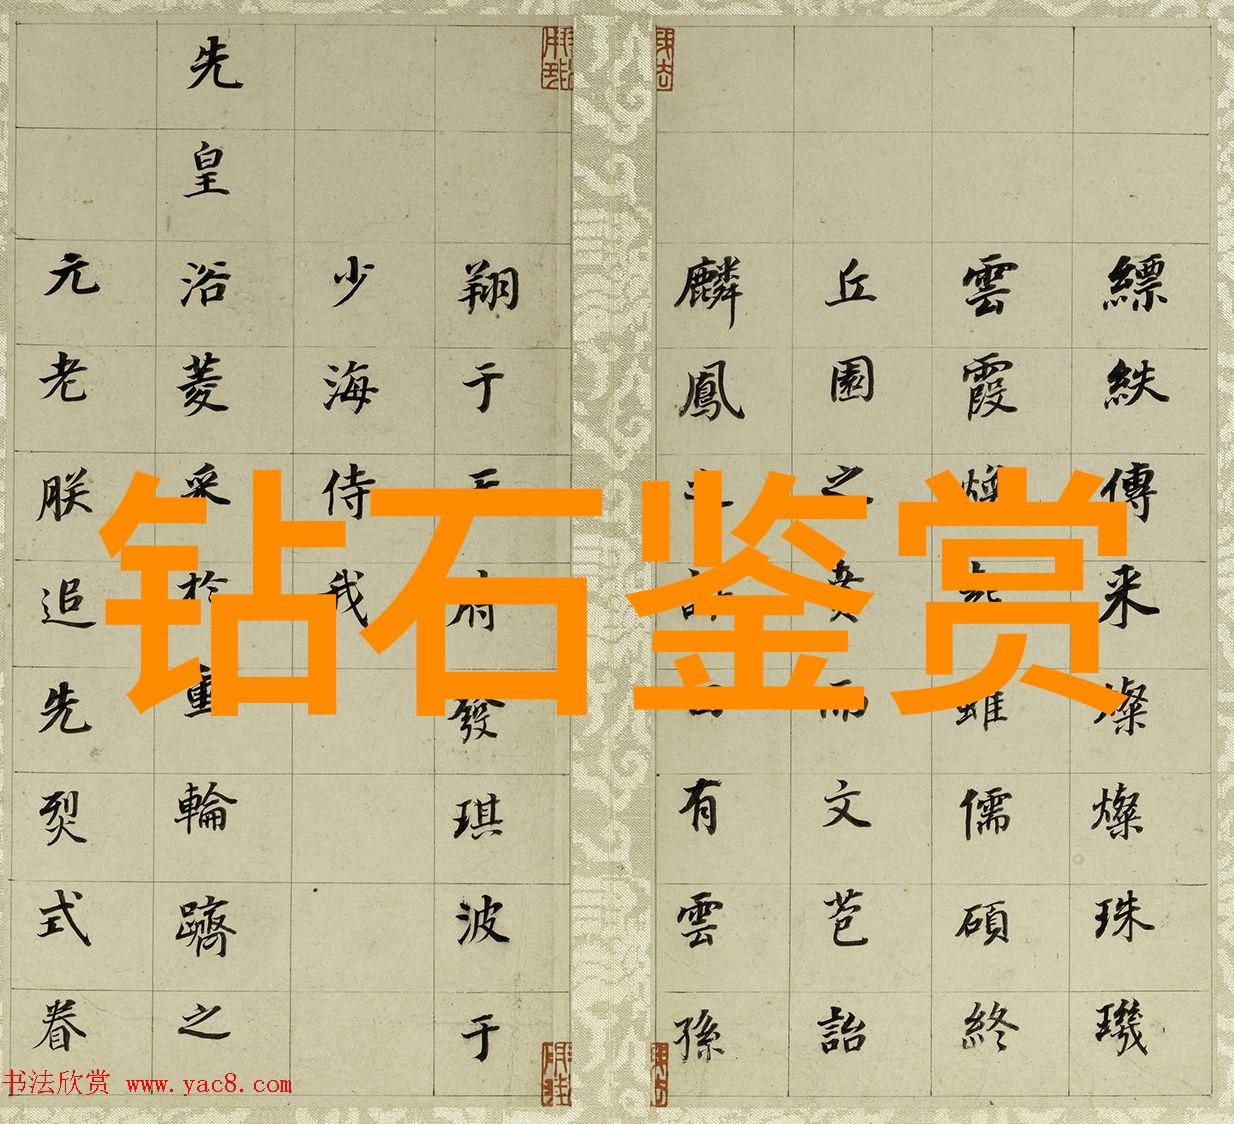 钻石鉴赏
縹紩傳来澯燦珠璣
雲霞雖儒碩終
丘園之賁而文芑詒
麟鳳之有雲孫
翔于天府發琪波于
少海侍我
先皇浴菱采於重輪躋之
元老朕追先烈式眷
书法欣赏 www.yac8.com